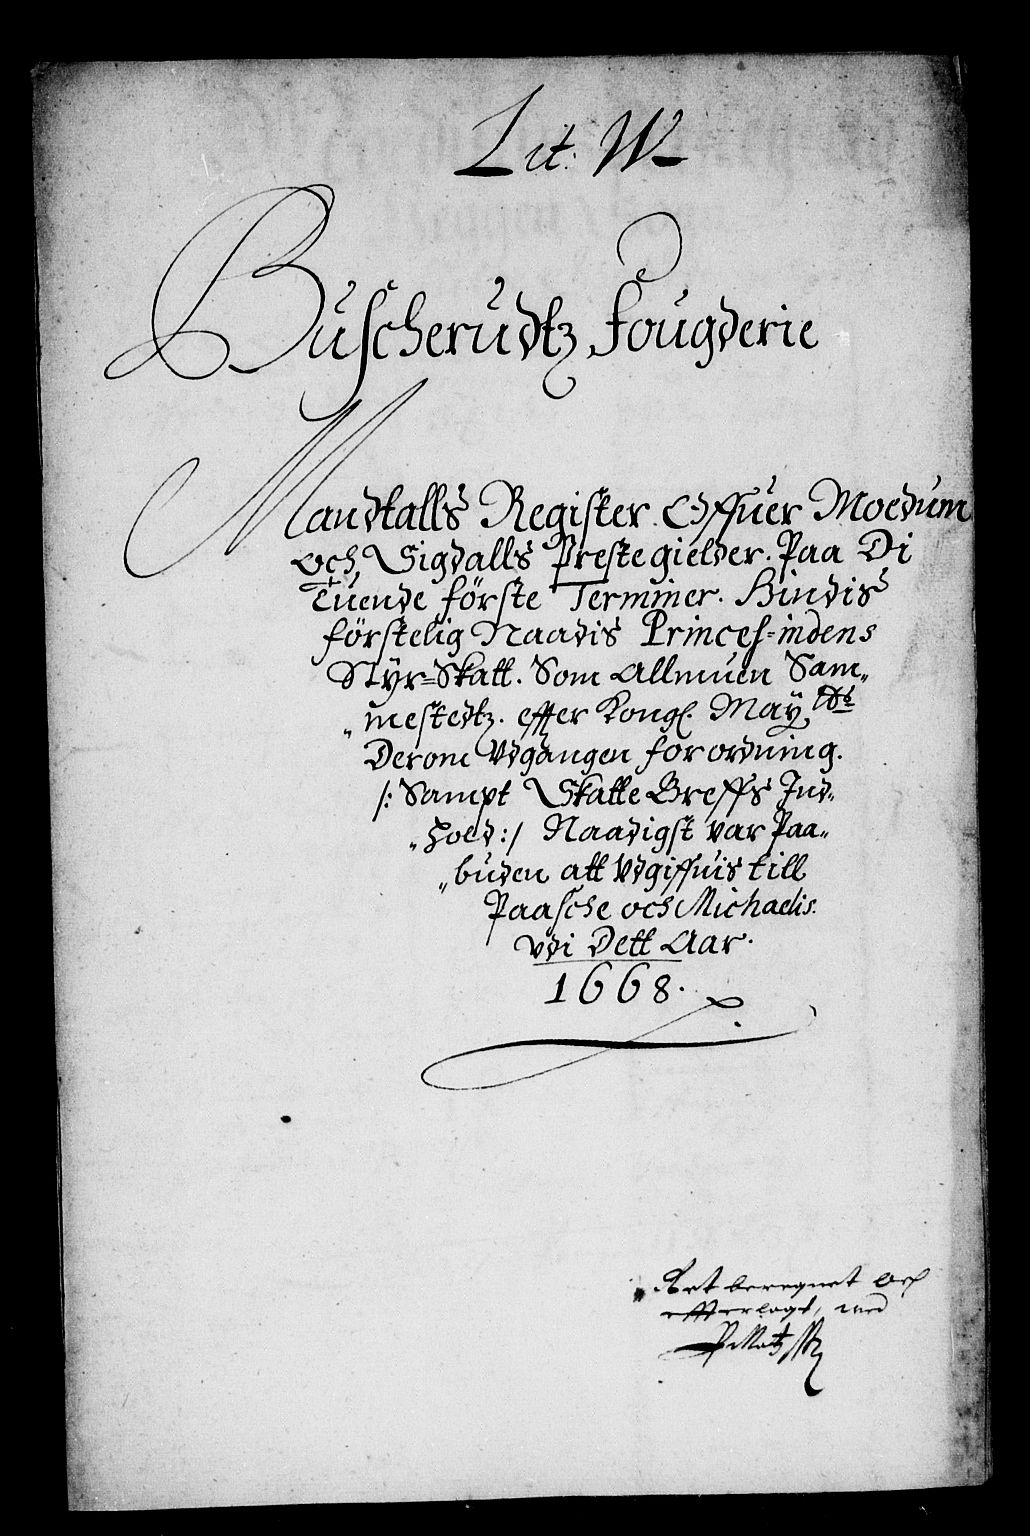 Lit: W
Buscherudtz Fougderie
Mandtalls Register Offuer Moedum
och Sigdalls Prestegielder. Paa Di
Tuende förste Terminer. Hindis
förstelig Naadis Princes=indens
Styr=Skatt. Som Allmuen Sam„
„mestedtz. effter Kongl. May.tts
Derom Vdgangen forordning.
/: Sampt Skatte Breffs Ind„
„hold :/ Naadigst var Paa„
„buden att Vdgiffuis till
Paasche och Michaelis.
vdi Dett Aar.
1668.
Ret beregnet och
efferlagt, med